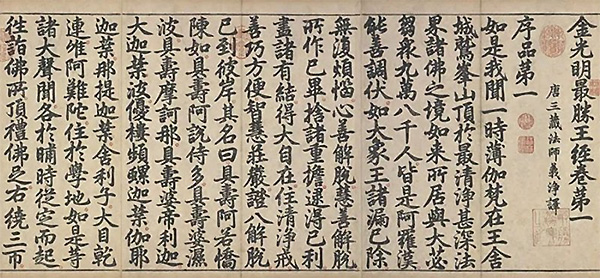 金光明最勝王經卷第一
唐三藏法師義淨譯
序品第一
如是我聞一時薄伽梵在王舍
城鷲峯山頂於最清淨甚深法
界諸佛之境如來所居與大苾
芻衆九萬八千人皆是阿羅漢
能善調伏如大象王諸漏已除
無復煩惱心善解脫慧善解脫
所作已畢捨諸重擔逮得已利
盡諸有結得大自在住清淨戒
善巧方便智慧莊嚴證八解脫
已到彼岸其名曰具壽阿若憍
陳如具壽阿說侍多具壽婆濕
波具壽摩訶那具壽婆帝利迦
大迦葉波優樓頻螺迦葉伽耶
迦葉那提迦葉舍利子大目乾
連唯阿難陀住於學地如是等
諸大聲聞各於晡時從定而起
往詣佛所頂禮佛足右繞三帀